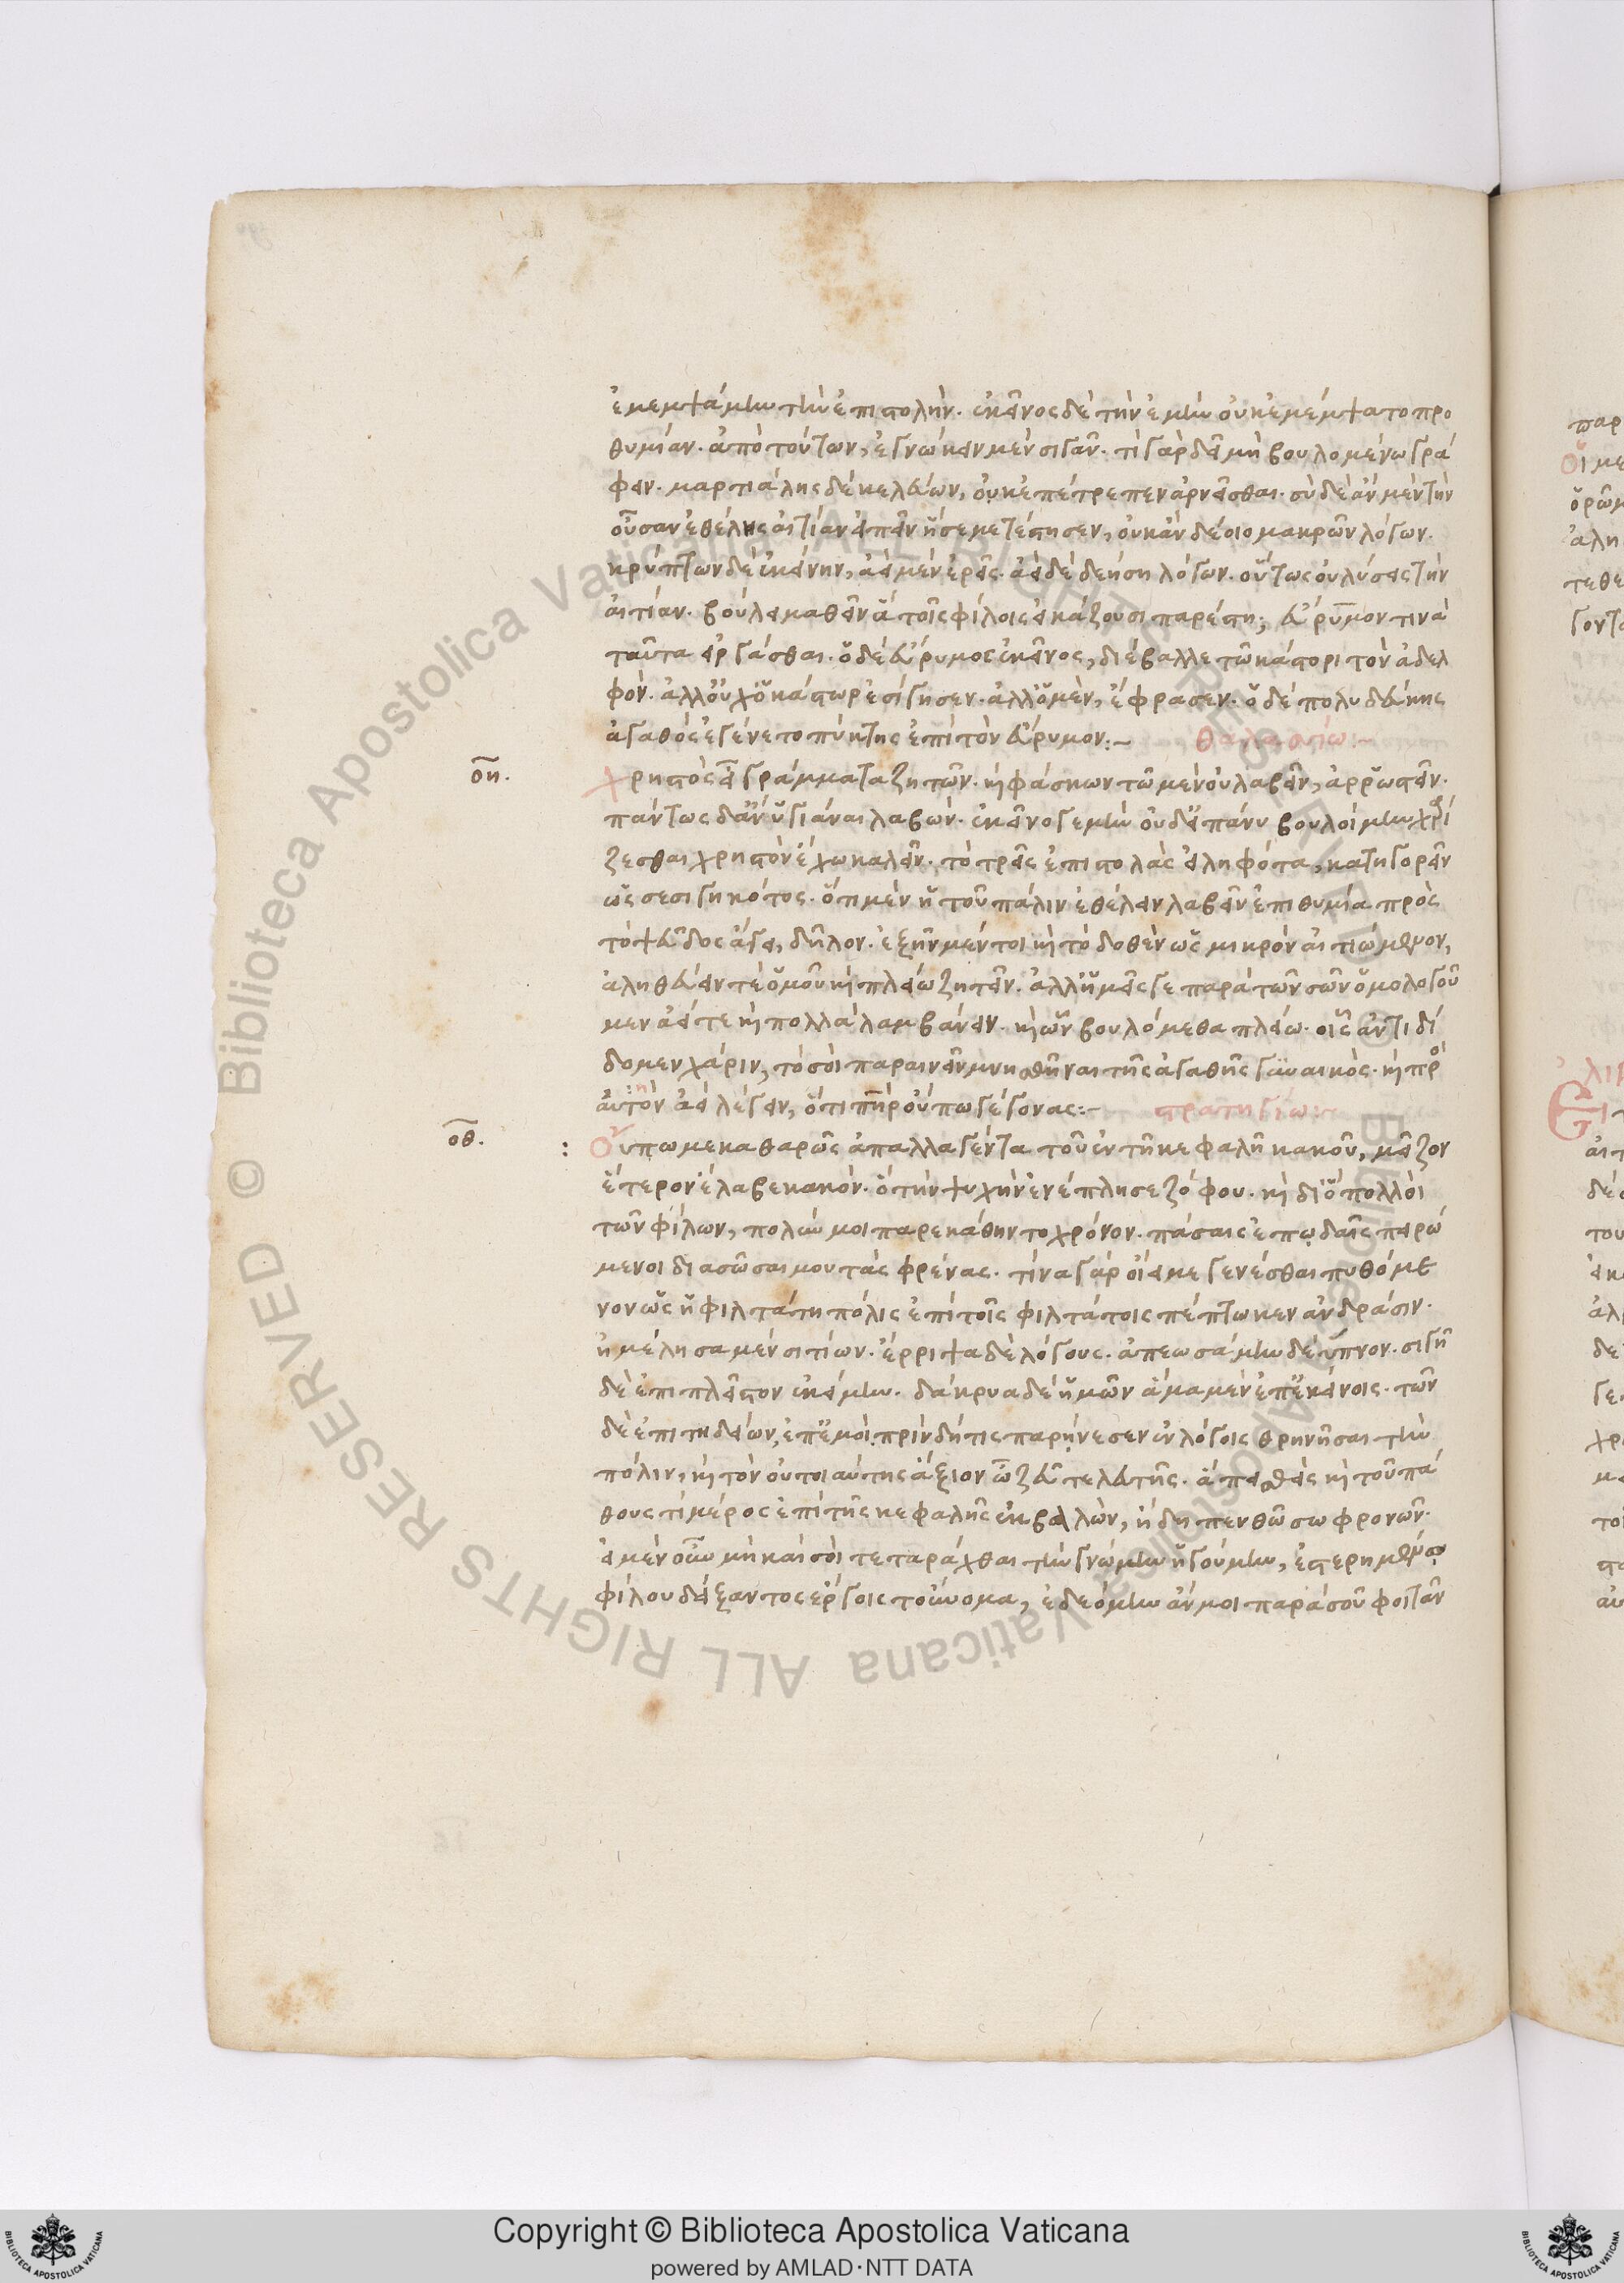 ἐμεμψάμην τὴν ἐπιστολὴν. ἐκεῖνος δὲ τὴν ἐμὴν οὐκ ἐμέμψατο προ
θυμίαν. ἀπὸ τούτων, ἐγνώκειν μὲν σιγᾶν. τί γὰρ δεῖ μὴ βουλομένω γρά
φειν. μαρτιάλης δὲ κελεύων, οὐκ ἐπέτρεπεν ἀρνεῖσθαι. σὺ δὲ ἂν μὲν τὴν
οὖσαν ἐθέλης αἰτίαν εἰπεῖν ἥ σε μετέστησεν, οὐκ ἂν δέοιο μακρῶν λόγων.
κρύπτων δὲ ἐκείνην, ἀεὶ μὲν ἐρεῖς. ἀεὶ δὲ δεήση λόγων. οὕτως οὐ λύσεις τὴν
αἰτίαν. βούλει μαθεῖν ἃ τοῖς φίλοις εἰκάζουσι παρέστη; εὔρυμόν τινα
ταῦτα εἰργάσθαι. ὁ δὲ εὔρυμος ἐκεῖνος, διέβαλλε τῶ κάστορι τὸν ἀδελ
φόν. ἀλλ' οὐχ ὁ κάστωρ ἐσίγησεν. ἀλλ' ὁ μὲν, ἔφρασεν. ὁ δὲ πολυδεύκης
ἀγαθὸς ἐγένετο πύκτης ἐπὶ τὸν εὔρυμον:– θαλασσίω:–
οη. χρηστὸς εἶ γράμματα ζητῶν. καὶ φάσκων τῶ μὲν οὐ λαβεῖν, ἀρρωστεῖν.
πάντως δ' ἂν ὑγιάναι λαβών. ἐκεῖνό γε μὴν οὐδ' εἰ πάνυ βουλοίμην χαρί
ζεσθαι χρηστὸν ἔχω καλεῖν. τὸ τρεῖς ἐπιστολὰς εἰληφότα, κατηγορεῖν
ὡς σεσιγηκότος. ὅτι μὲν ἡ τοῦ πάλιν ἐθέλειν λαβεῖν ἐπιθυμία πρὸς
τὸ ψεῦδος ἄγει, δῆλον. ἐξῆν μέντοι καὶ τὸ δοθὲν ὡς μικρὸν αἰτιώμενον,
ἀληθεύειν τὲ ὁμοῦ καὶ πλείω ζητεῖν. ἀλλ' ἡμεῖς γε παρὰ τῶν σῶν ὁμολογοῦ
μεν ἀεί τε καὶ πολλὰ λαμβάνειν. καὶ ὧν βουλόμεθα πλείω. οἷς ἀντιδί
δομεν χάριν, τὸ σοὶ παραινεῖν μνησθῆναι τῆς ἀγαθῆς γυναικὸς. καὶ πρὸς
αὐτὴν ἀεὶ λέγειν, ὅτι πατὴρ οὔπω γέγονας:– στρατηγίω:–
οθ. : Οὔπω με καθαρῶς ἀπαλλαγέντα τοῦ ἐν τῆ κεφαλῆ κακοῦ, μεῖζον
ἕτερον ἔλαβε κακόν. ὃ τὴν ψυχὴν ἐνέπλησε ζόφου. καὶ δι' ὃ πολλοὶ
τῶν φίλων, πολύν μοι παρεκάθηντο χρόνον. πάσαις ἐπῳδαῖς πειρώ
μενοι διασῶσαι μου τὰς φρένας. τίνα γὰρ οἴει με γενέσθαι πυθόμε
νον ὡς ἡ φιλτάτη πόλις ἐπὶ τοῖς φιλτάτοις πέπτωκεν ἀνδράσιν.
ἠμέλησα μὲν σιτίων. ἔρριψα δὲ λόγους. ἀπεωσάμην δὲ ὕπνον. σιγῆ
δὲ ἐπιπλεῖστον ἐκείμην. δάκρυα δὲ ἡμῶν ἅμα μὲν ἐπ' ἐκείνοις. τῶν
δὲ ἐπιτηδείων, ἐπ' ἐμοὶ. πρὶν δή τις παρήνεσεν ἐν λόγοις θρηνῆσαι τὴν
πόλιν, καὶ τὸν οὐ τοιαύτης ἄξιον ὦ ζεῦ τελευτῆς. ᾧ πεισθεὶς καὶ τοῦ πά
θους τι μέρος ἐπὶ τῆς κεφαλῆς ἐκβαλὼν, ἤδη πενθῶ σωφρονῶν.
εἰ μὲν οὖν μὴ καὶ σοὶ τεταράχθαι τὴν γνώμην ἡγούμην, ἐστερημένω
φίλου δείξαντος ἔργοις τοὔνομα, ἐδεόμην ἄν μοι παρὰ σοῦ φοιτᾶν